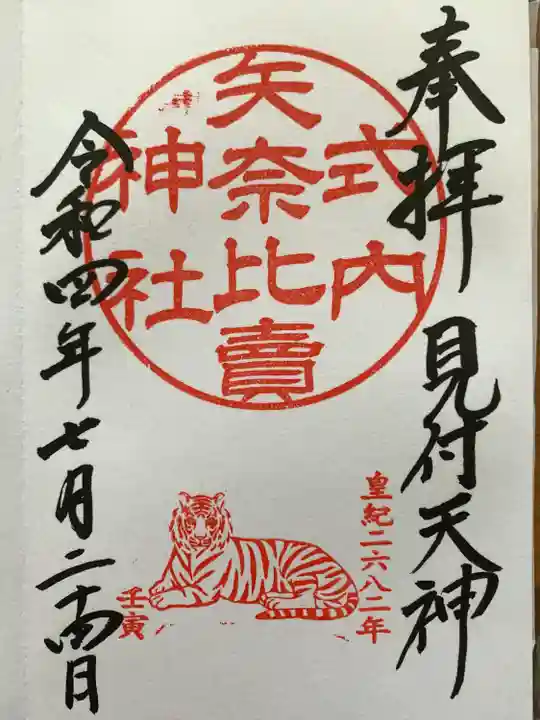 奉拝 見付天神
式内
矢奈比賣
神社
皇紀二六八二年
壬寅
令和四年七月二十四日